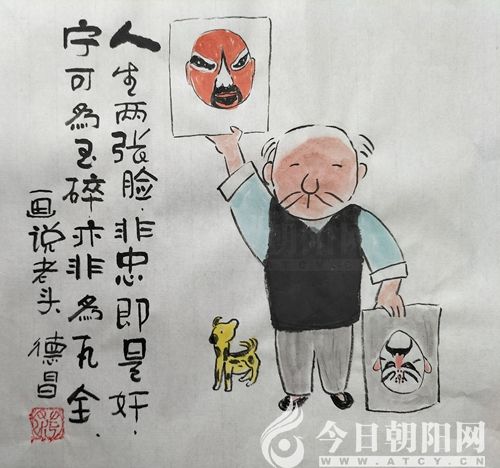 人生两张脸.非忠即是奸.
宁可為玉碎亦非為瓦全.
画说老头 德昌
今日朝阳网
WWW.ATCY.CN